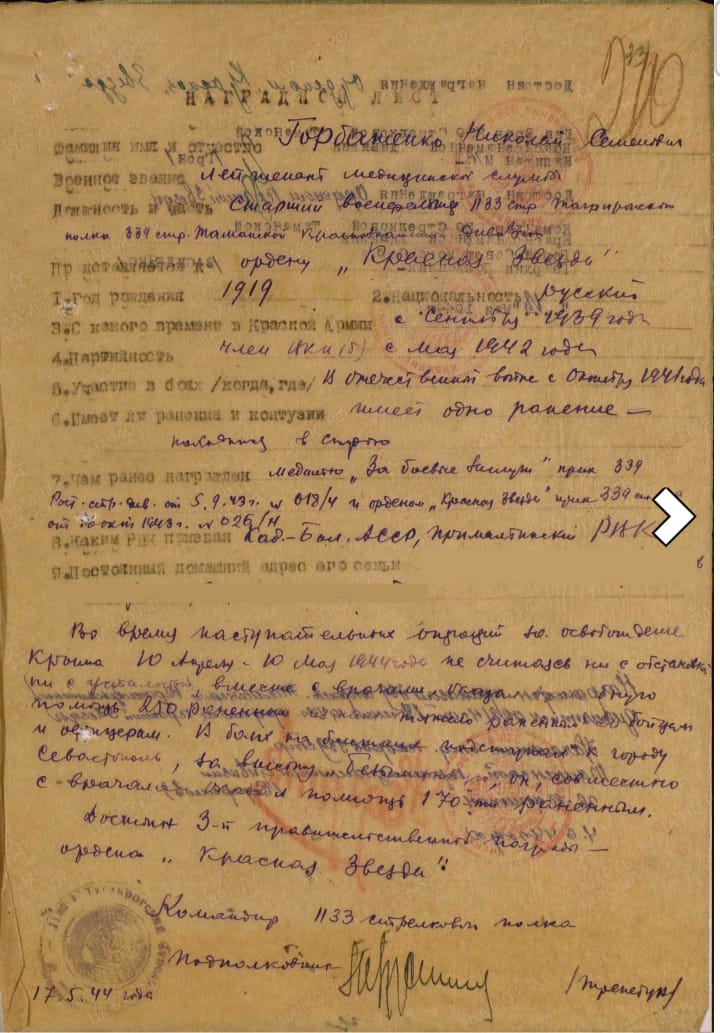 НАГРАДНОЙ ЛИСТ
Фамилия имя и отчество Горбаненко Николай Семенович
Военное звание Лейтенант медицинской службы
Должность и часть Старший военфельдшер 1133 стр. Таганрогского
полка 339 стр. Таманской Краснознаменной дивизии
Представляется к ордену „Красная Звезда"
1. Год рождения 1919 2. Национальность русский
3. С какого времени в Красной Армии с Сентября 1939 года
4. Партийность член ВКП(б) с мая 1942 года
5. Участие в боях /когда, где/ В отечественной войне с Октября 1941 года
6. Имеет ли ранения и контузии имеет одно ранение —
в
7. Чем ранее награжден медалью „За боевые заслуги" прик 339
Рост. стр. див. от 5.9.43 г. № 018/н и орденом „Красная Звезда" прик 339
от окт 1943 г. № 026/н
8. Каким РВК призван Каб.-Бал. АССР, Прималкинский РВК
9. Постоянный домашний адрес его семьи
Во время наступательных операций за освобождение
Крыма 10 Апреля - 10 мая 1944 года не считаясь ни с обстановкой
ни с усталостью, вместе с врачами оказал
помощь 250 раненным тяжело раненным бойцам
и офицерам. В боях на подступах к городу
Севастополь, за высоту Безымянная, он, совместно
с врачами помощь 170-ти раненным.
Достоин 3-й правительственной награды —
ордена „Красная Звезда".
Командир 1133 стрелкового полка
Подполковник
17.5.44 года